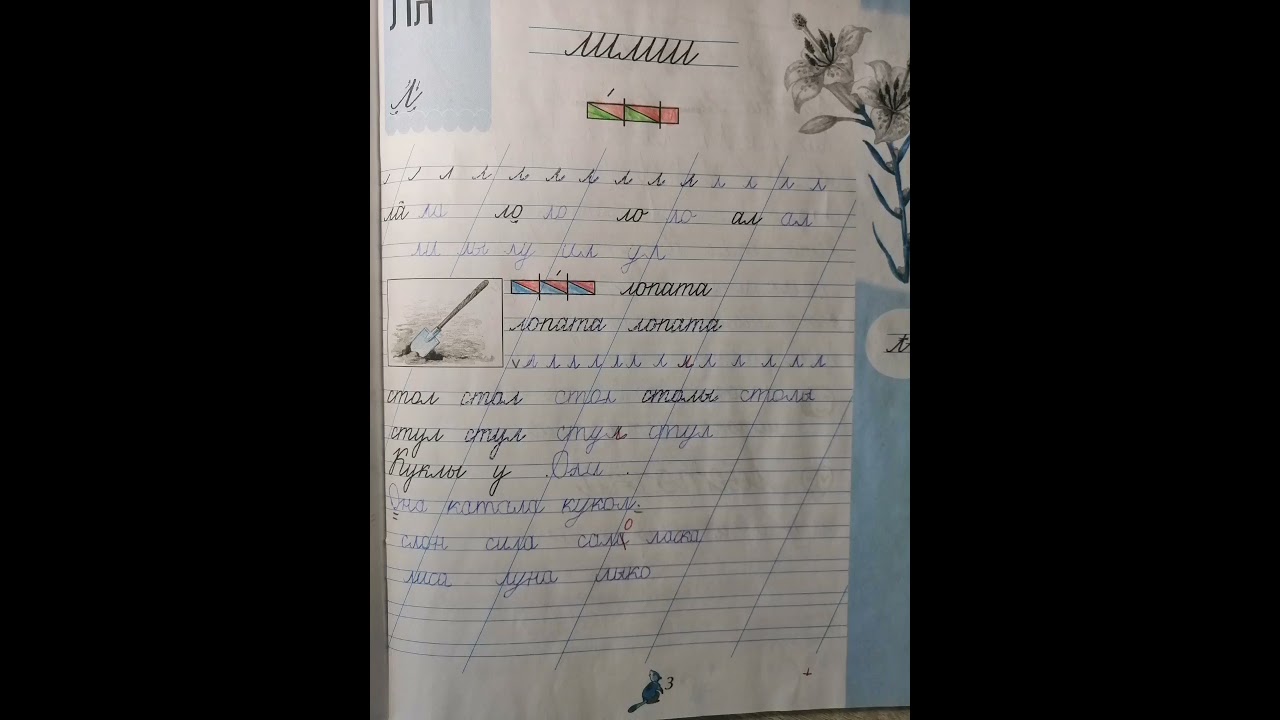 Лл
лилии
Л
л л л л л л л л л л л л л л
ла ла ло ло ло ло ал ал
ли лы лу ил ул
лопата
лопата лопата
л л л л л л л л л л л л л
стол стол стол столы столы
стул стул стул стул
Куклы у Оли .
Она катала кукол.
о
слон сила сала ласка
лиса луна лыко
3